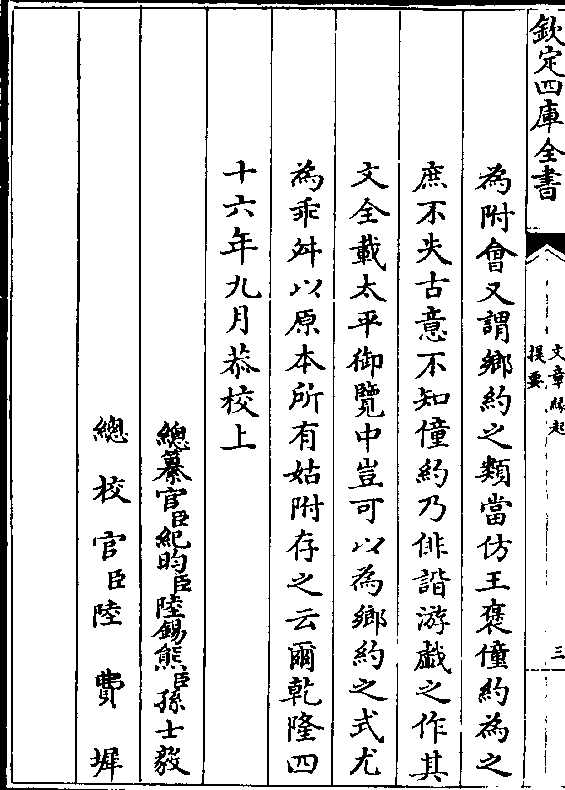 欽定四庫全書
文章緣起
提要
三
為附會又謂鄉約之類當仿王褒僮約為之
庶不失古意不知僮約乃俳諧游戲之作其
文全載太平御覽中豈可以為鄉約之式尤
為乖舛以原本所有姑附存之云爾乾隆四
十六年九月恭校上
總纂官臣紀昀臣陸錫熊臣孫士毅
總校官臣陸費墀